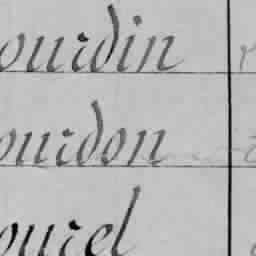 ourdin
ourdon
ourel